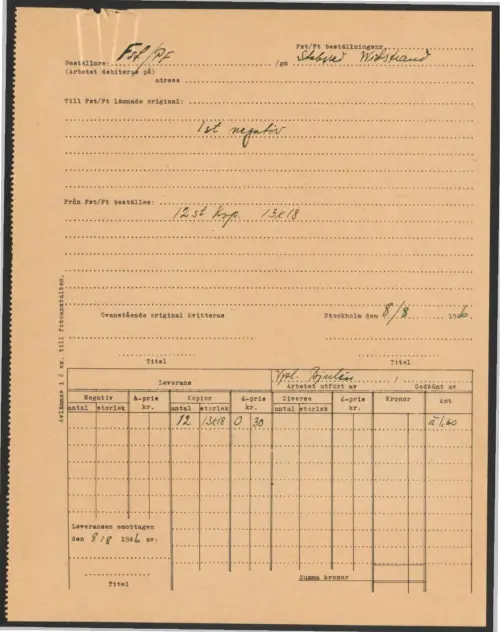 Fst/Ft beställningsnr
Beställare: Fst/PF /gm Stabsred Widstrand
(Arbetet debiteras på)
adress
Till Fst/Ft lämnade original:
1 st negativ
Från Fst/Ft beställes:
12 st kop. 13x18
Avlämnas i 2 ex. till fotoanstalten.
Ovanstående original kvitteras
Stockholm den 8/8 1946
Titel
Titel
Leverans
Vpl.
Arbetet utfört av
Godkänt av
Negativ
à-pris kr.
Kopior
à-pris kr.
Diverse
à-pris kr.
Kronor
Ant
antal storlek
antal storlek
antal storlek
12 13x18 0 30
à 1,60
Leveransen emottagen
den 8/8 1946 av:
Titel
Summa kronor